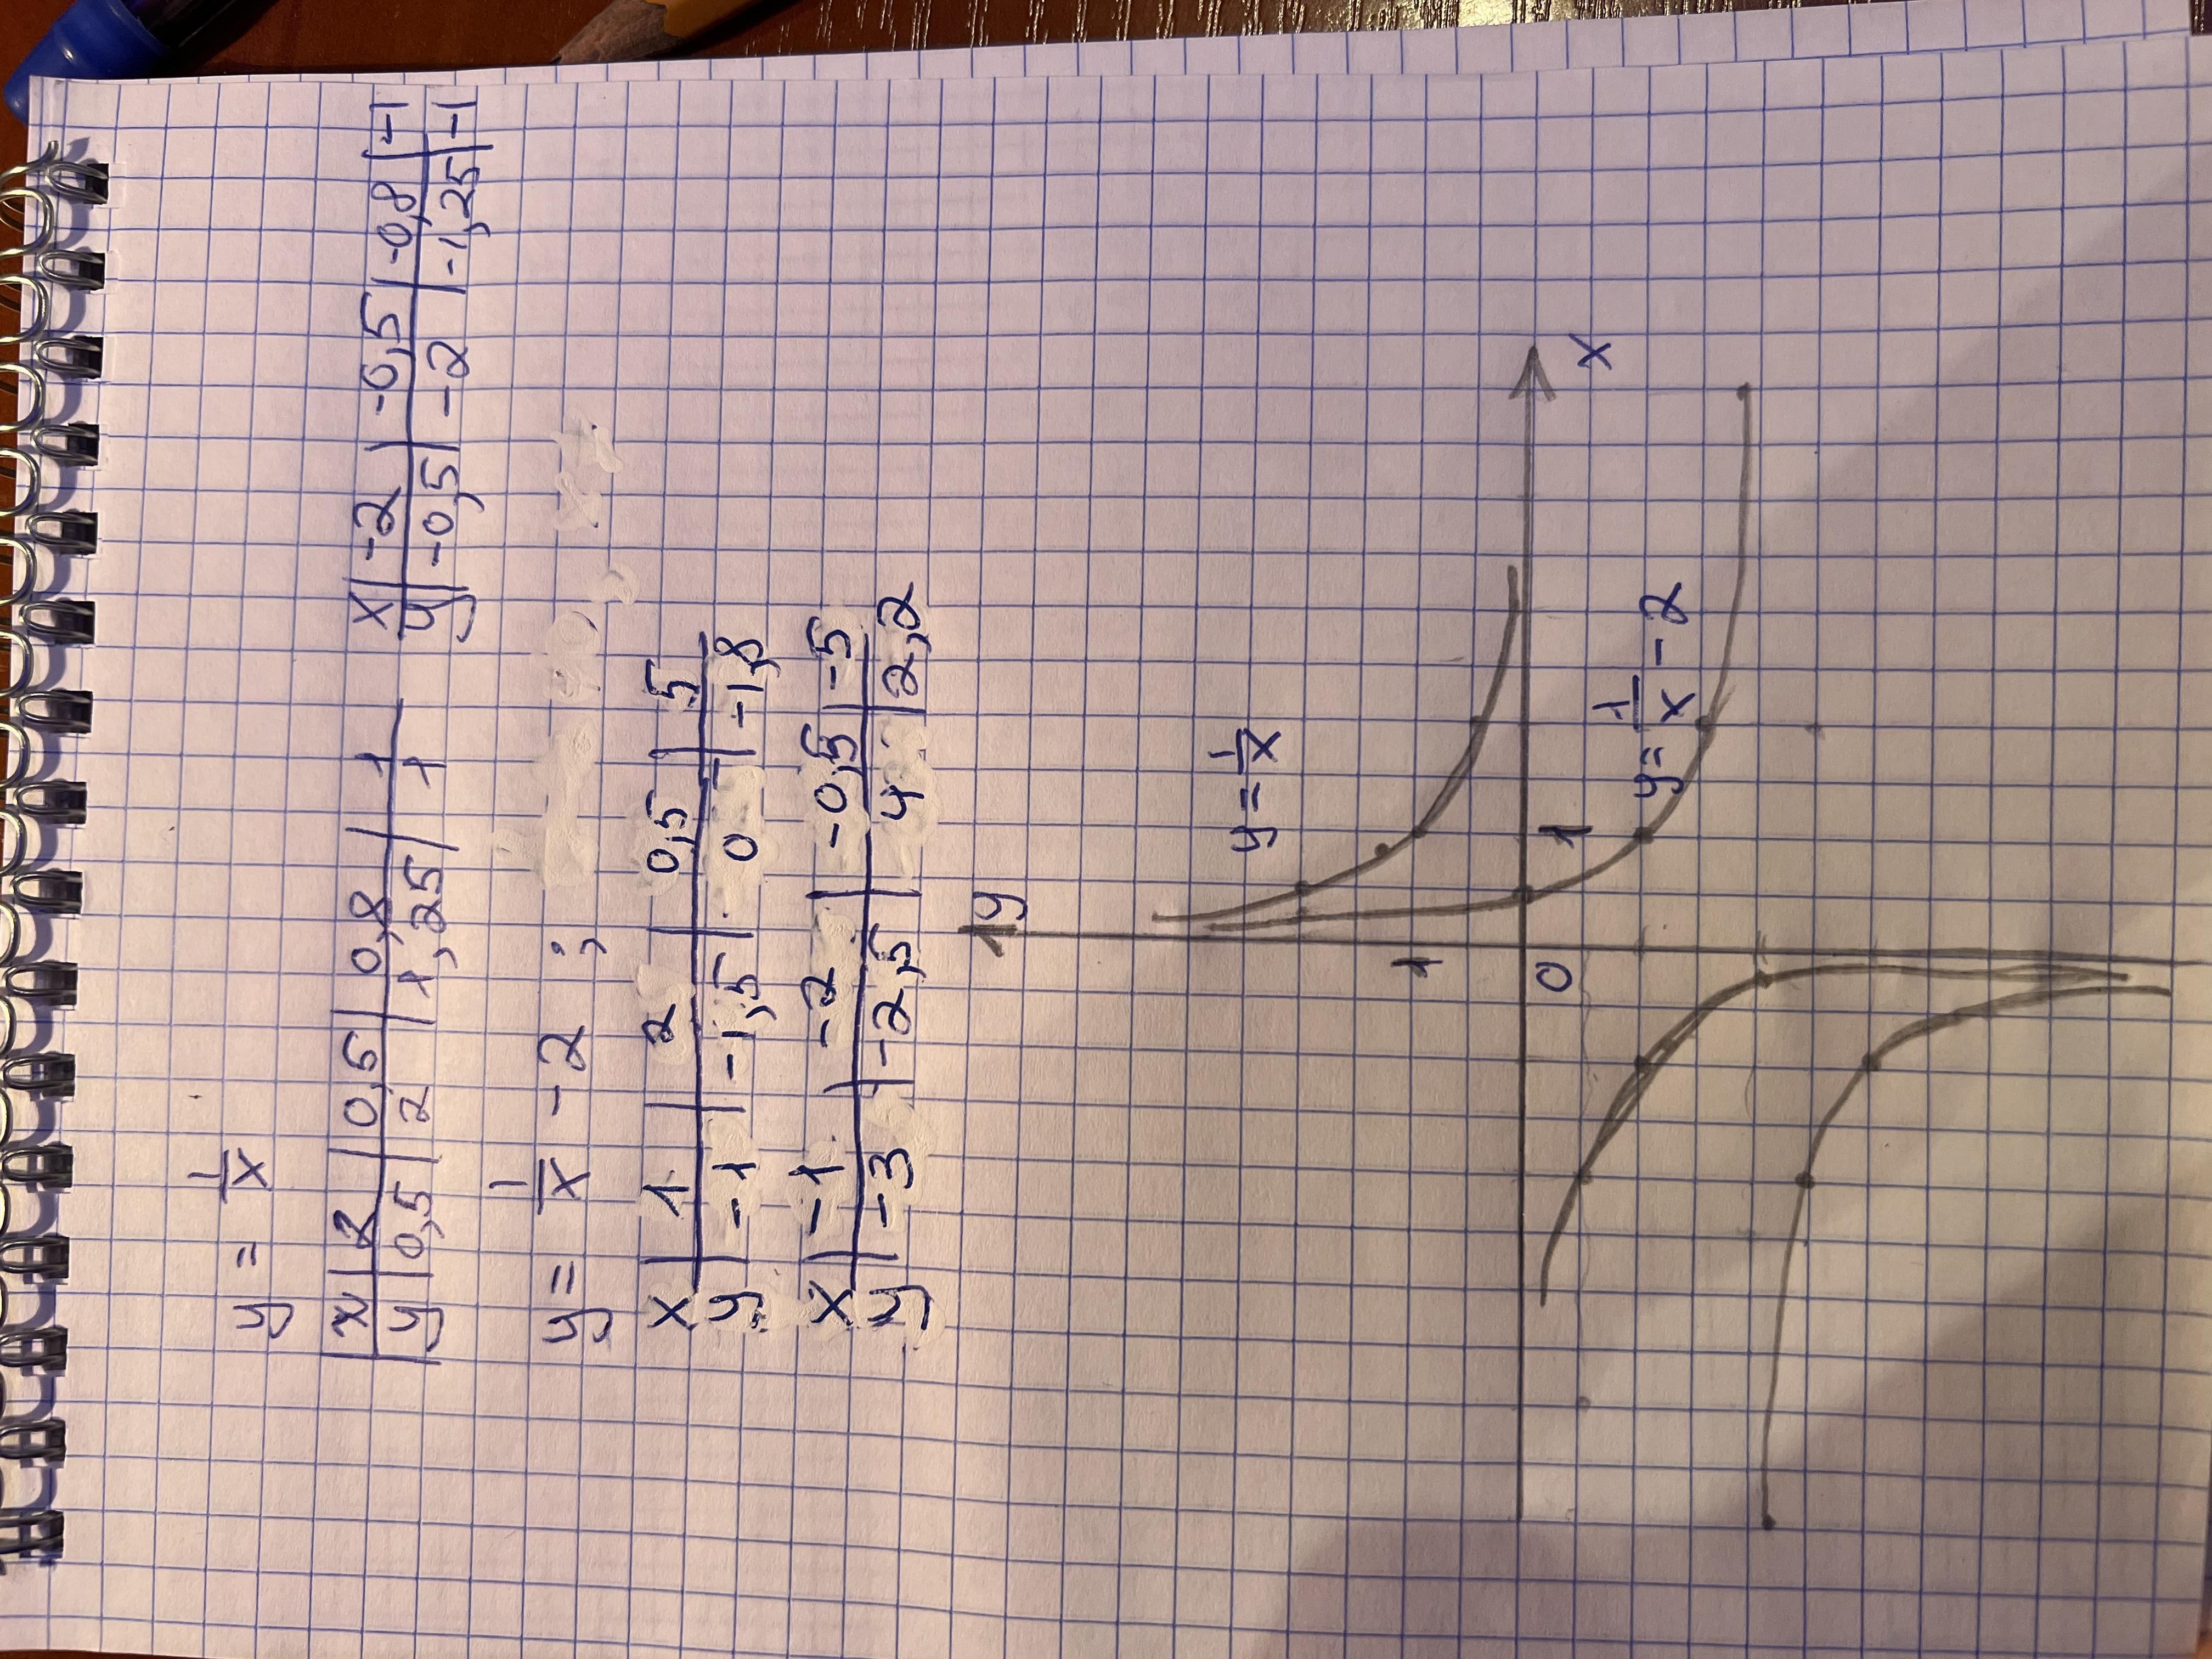 y = 1/x
x | 2 | 0,5 | 0,8 | 1
y | 0,5 | 2 | 1,25 | 1
x | -2 | -0,5 | -0,8 | -1
y | -0,5 | -2 | -1,25 | -1
y = 1/x - 2 ;
x | 1 | 2 | 0,5 | 5
y | -1 | -1,5 | 0 | -1,8
x | -1 | -2 | -0,5 | -5
y | -3 | -2,5 | 4 | 2,2
y
y = 1/x
1
0
1
x
y = 1/x - 2